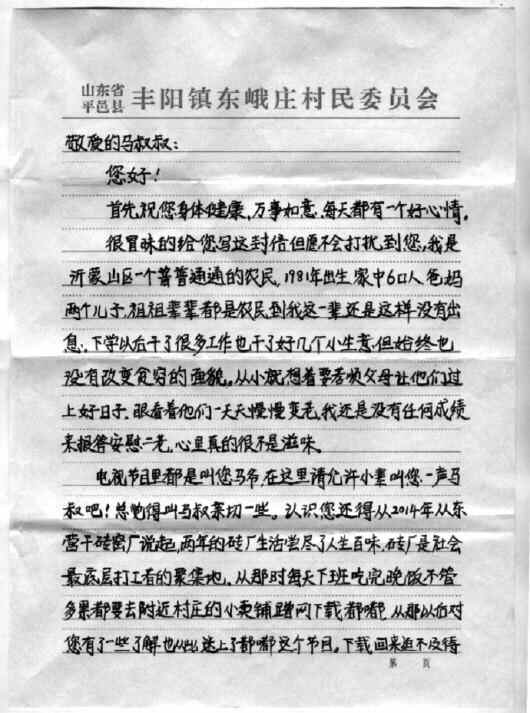 山东省
平邑县 丰阳镇东峨庄村民委员会
敬爱的马叔叔:
您好!
首先祝您身体健康,万事如意,每天都有一个好心情。
很冒昧的给您写这封信但愿不会打扰到您,我是
沂蒙山区一个普普通通的农民,1981年出生家中6口人爸妈
两个儿子,祖祖辈辈都是农民到我这一辈还是这样没有出
息,下学以后干了很多工作也干了好几个小生意,但始终也
没有改变贫穷的面貌。从小就想着要孝顺父母让他们过
上好日子,眼看着他们一天天慢慢变老,我还是没有任何成绩
来报答安慰二老,心里真的很不是滋味。
电视节目里都是叫您马爷,在这里请允许小辈叫您一声马
叔吧!总觉得叫马叔亲切一些。认识您还得从2014年从东
营干砖窑厂说起,两年的砖厂生活尝尽了人生百味,砖厂是社会
最底层打工者的聚集地。从那时每天下班吃完晚饭不管
多累都要去附近村庄的小卖铺蹭网下载都嘟,从那以后对
您有了一些了解也从此迷上了都嘟这个节目。下载回来迫不及待
第 页